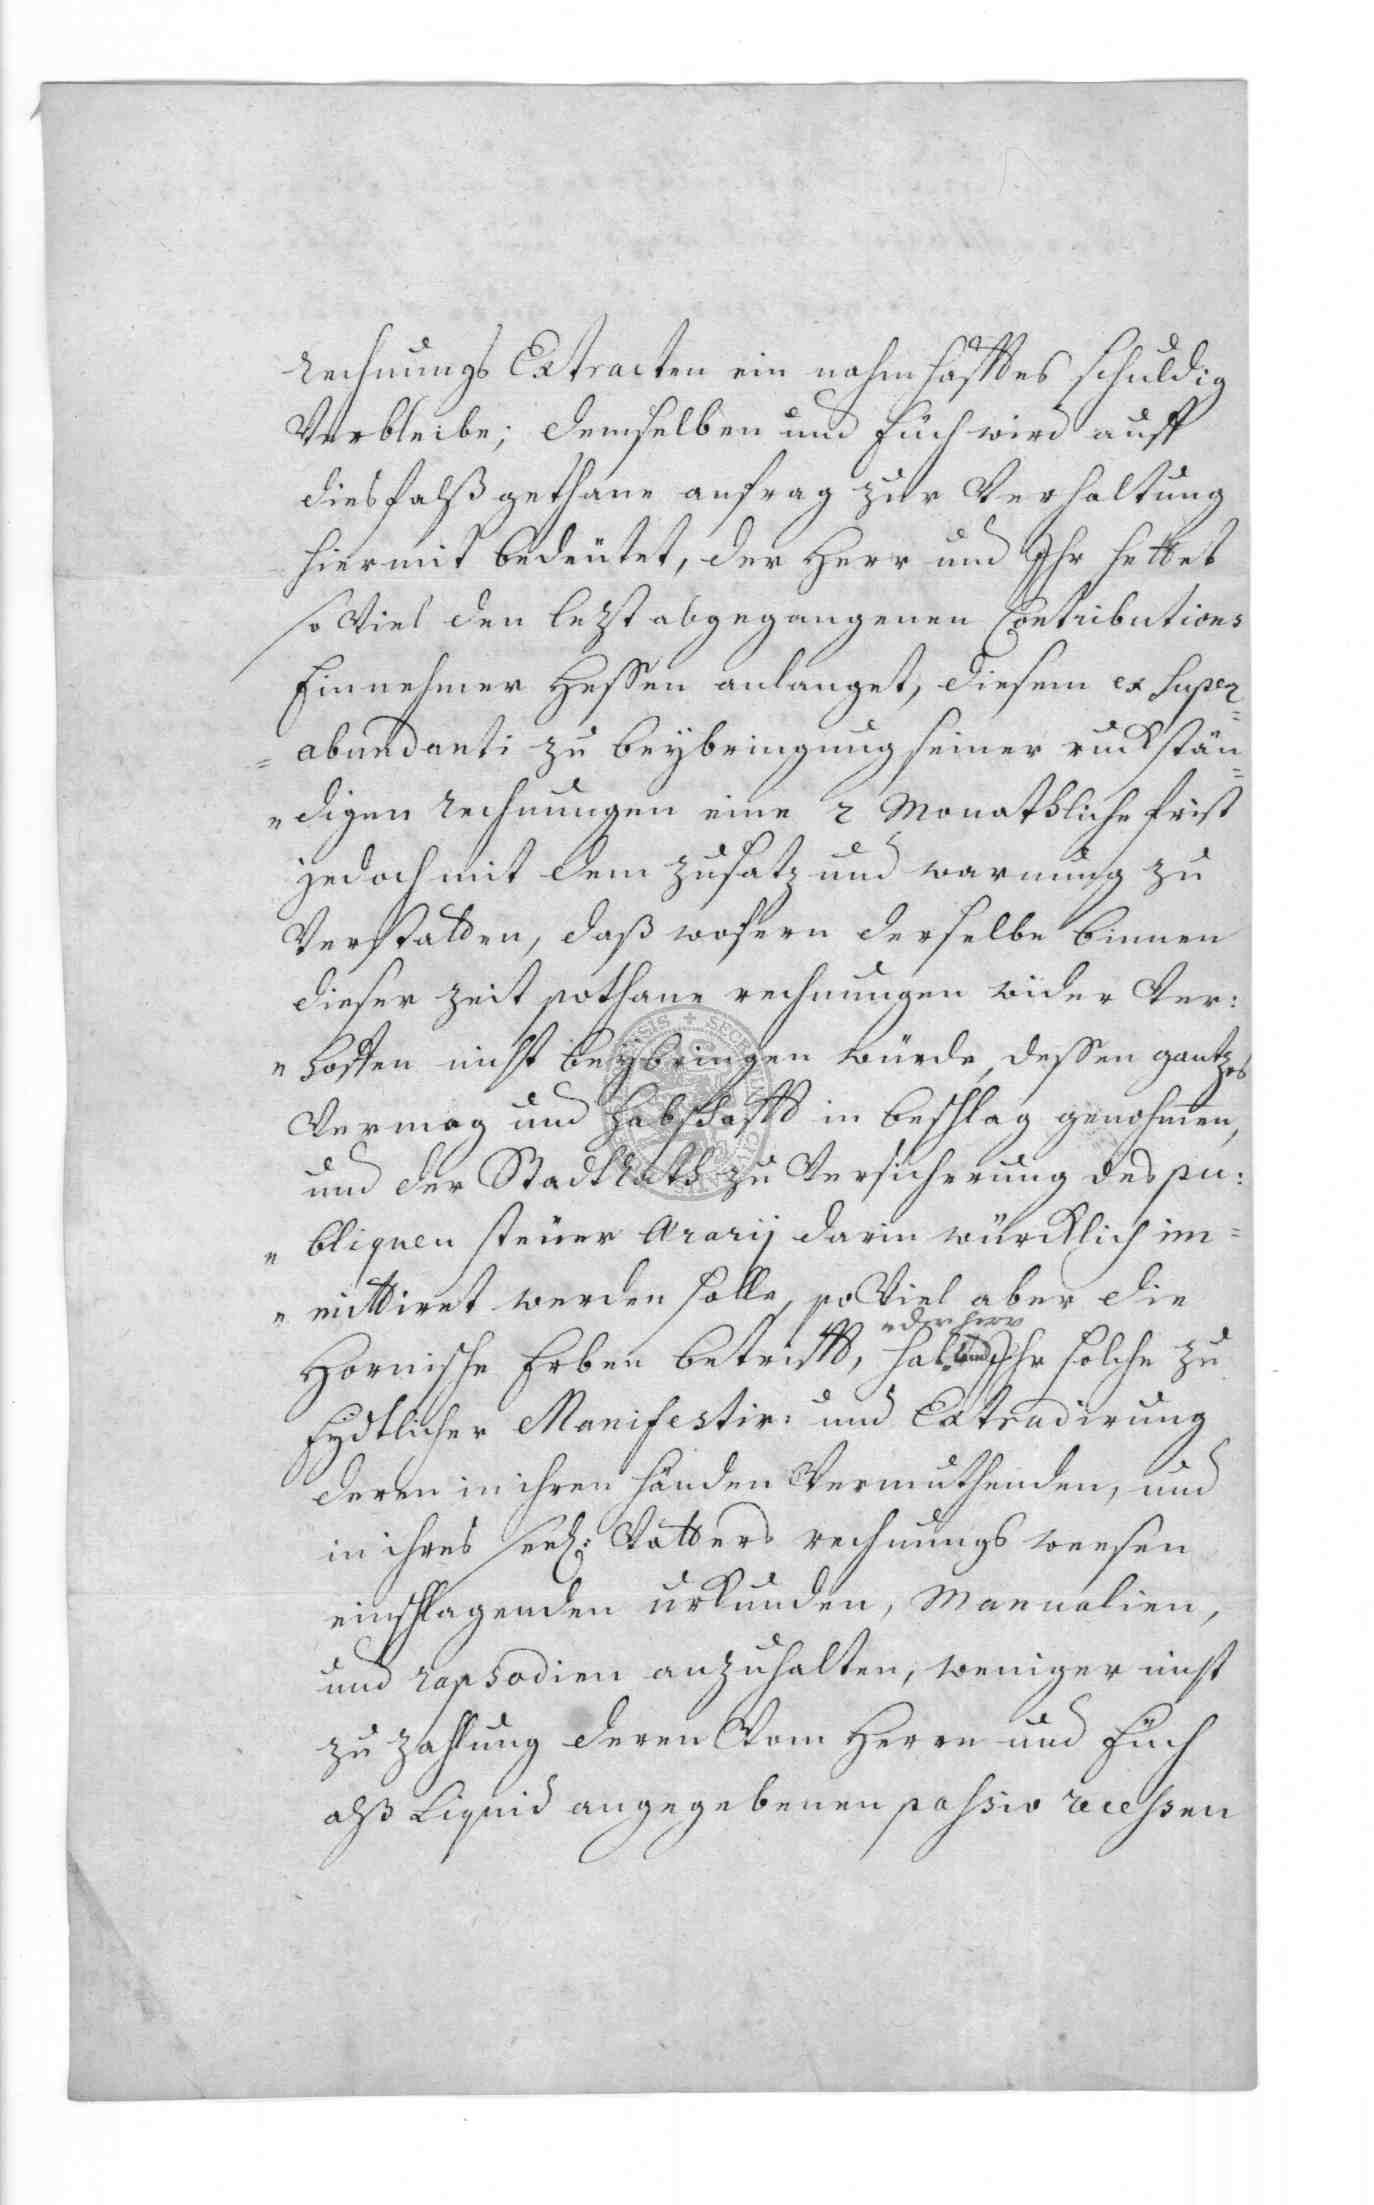 rechnungs Extracten ein nahmhafftes schuldig
Verbleibe; demselben und Euch wird auff
diesfalß gethane anfrag zur Verhaltung
hiermit bedeütet, der Herr und Ihr hettet
so Viel den lezt abgegangenen Contributions
Einnehmer Hessen anlanget, diesem ex super=
=abundanti zu beybringung seiner ruckstän=
"digen rechnungen eine 2 Monathliche frist
jedoch mit dem zusatz und warnung zu
Verstatten, daß wofern derselbe binnen
dieser zeit sothane rechnungen wider Ver:
"hoffen nicht beybringen würde, dessen gantzes
Vermög und habschafft in beschlag genohmen,
und der Stadtrath zu Versicherung des pu:
"bliquen steüer Ærarij darin würcklich im=
"mittiret werden solle, so Viel aber die
"der herr
Hornische Erben betrifft, hab und Ihr solche zu
Eydtlicher Manifestir: und Extradirung
deren in ihren händen Vermuthenden, und
in ihres seel: Vatters rechnungs weesen
einschlagenden urkunden, Manualien,
und rapsodien anzuhalten, weniger nicht
zu zahlung deren Vom Herrn und Euch
alß Liquid angegebenen passiv recessen